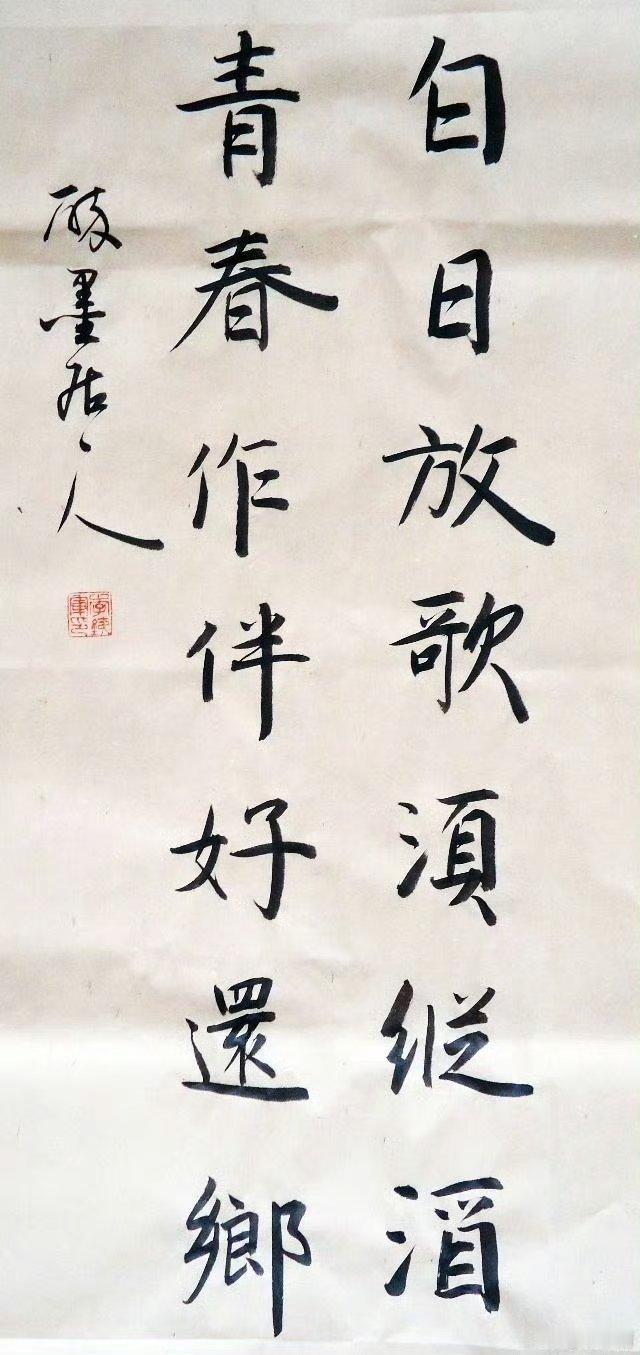 白日放歌須縱酒
青春作伴好還鄉
醉墨居人